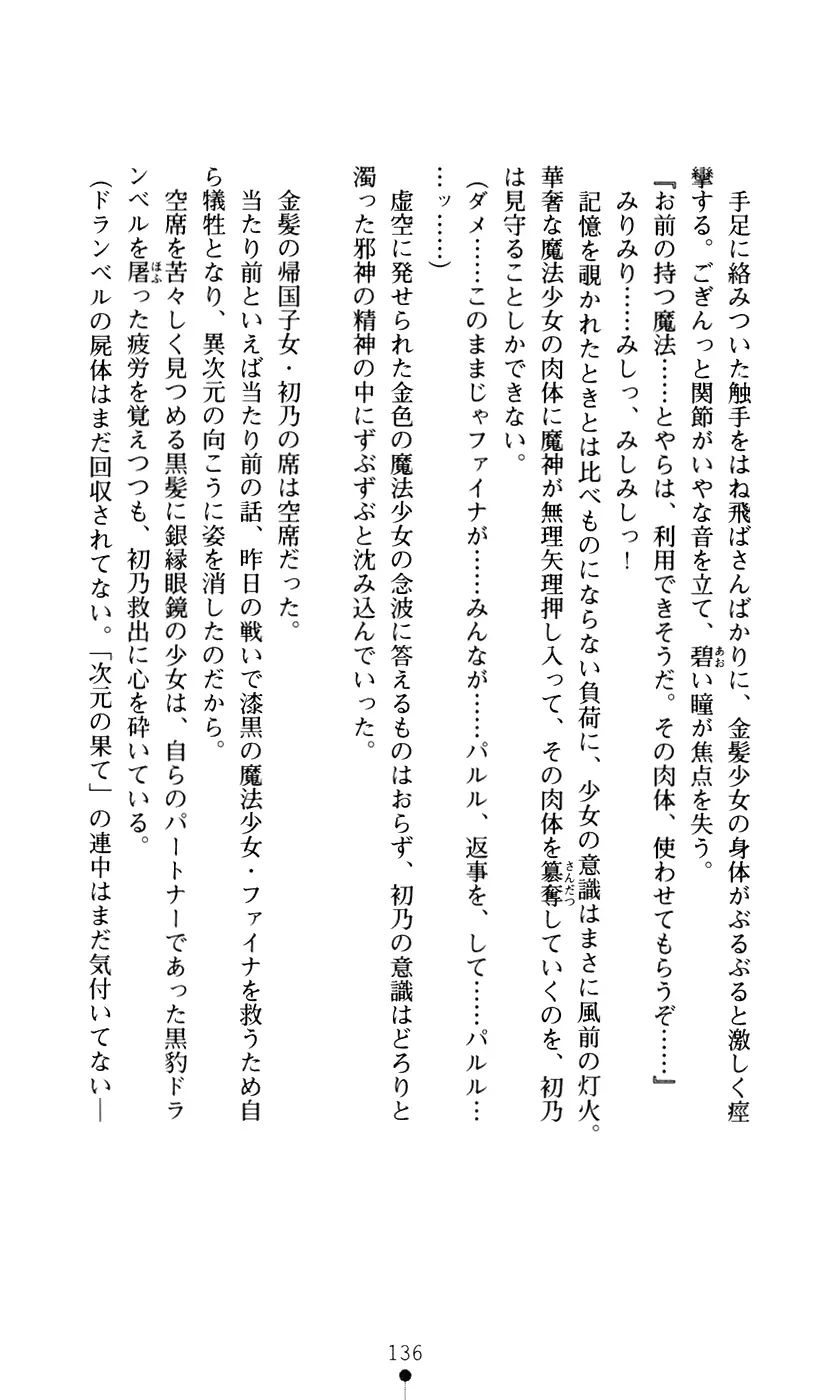 手足に絡みついた触手をはね飛ばさんばかりに、金髪少女の身体がぶるぶると激しく痙
攣する。ごぎんっと関節がいやな音を立て、碧い瞳が焦点を失う。
『お前の持つ魔法……とやらは、利用できそうだ。その肉体、使わせてもらうぞ……』
みりみり……みしっ、みしみしっ！
記憶を覗かれたときとは比べものにならない負荷に、少女の意識はまさに風前の灯火。
華奢な魔法少女の肉体に魔神が無理矢理押し入って、その肉体を簒奪していくのを、初乃
は見守ることしかできない。
（ダメ……このままじゃファイナが……みんなが……パルル、返事を、して……パルル…
…ッ……）
虚空に発せられた金色の魔法少女の念波に答えるものはおらず、初乃の意識はどろりと
濁った邪神の精神の中にずぶずぶと沈み込んでいった。
金髪の帰国子女・初乃の席は空席だった。
当たり前といえば当たり前の話、昨日の戦いで漆黒の魔法少女・ファイナを救うため自
ら犠牲となり、異次元の向こうに姿を消したのだから。
空席を苦々しく見つめる黒髪に銀縁眼鏡の少女は、自らのパートナーであった黒豹ドラ
ンベルを屠った疲労を覚えつつも、初乃救出に心を砕いている。
（ドランベルの屍体はまだ回収されてない。「次元の果て」の連中はまだ気付いてない―
あお
さんだつ
ほふ
136